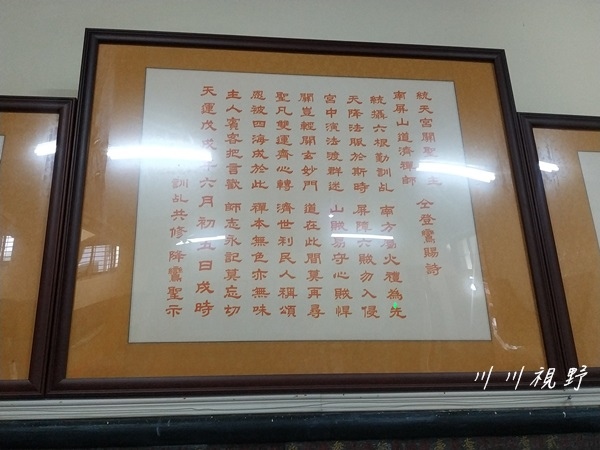 統天宮關聖 主 仝登鸞賜詩
南屏山道濟禪師
統攝六根勤訓乩 南方屬火禮為先
天降法服於斯時 屏障六賊勿入侵
宮中演法渡群迷 山賊易守心賊悍
關豈輕開玄妙門 道在此間莫再尋
聖凡雙運齊心轉 濟世利民人稱頌
恩被四海成於此 禪本無色亦無味
主人賓客把言歡 師志永記莫忘切
天運戊戌 六月初五日戌時
訓乩共修 降鸞聖示
川川視野